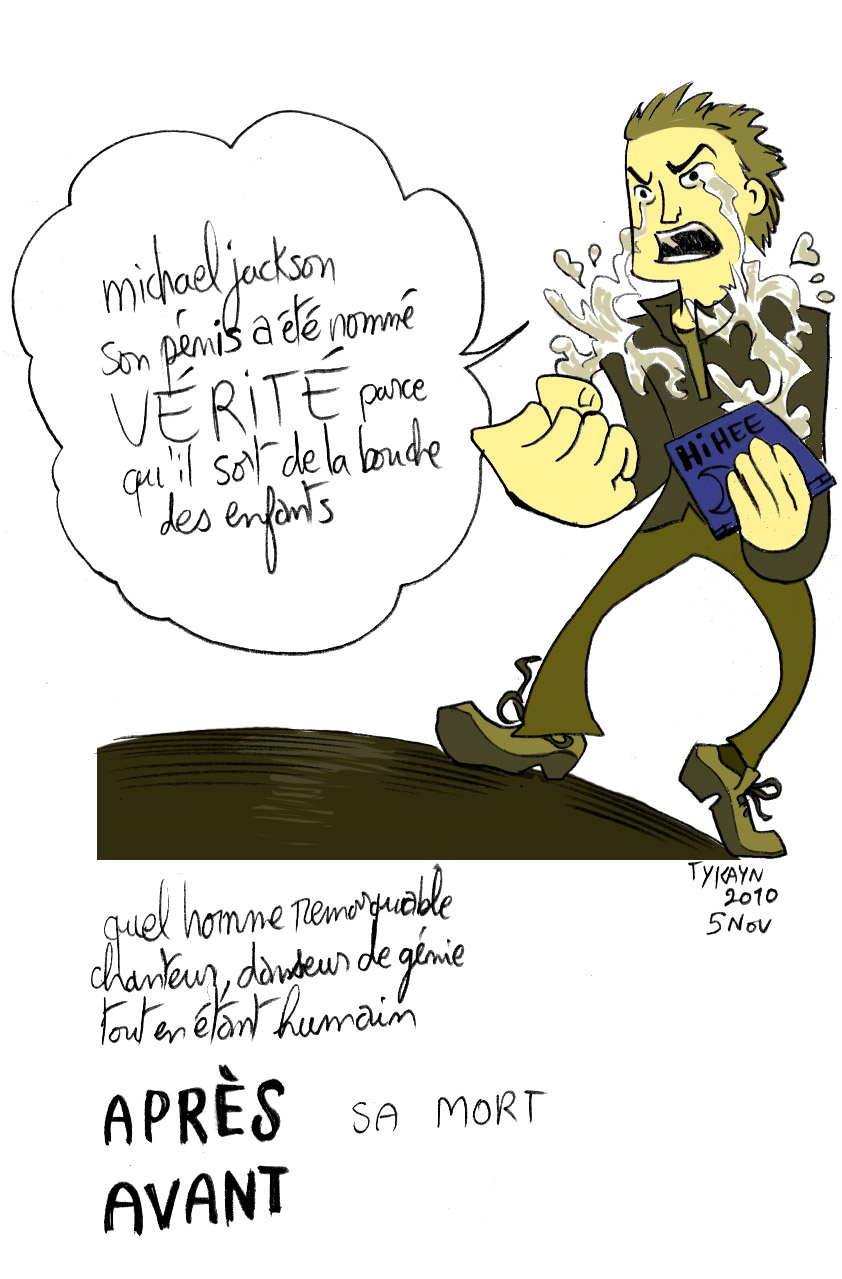 michael jackson
son pénis a été nommé
VÉRITÉ parce
qu'il sort de la bouche
des enfants
HiHEE
TYKAYN
2010
5 Nov
quel homme remarquable
chanteur, danseur de génie
tout en étant humain
APRÈS SA MORT
AVANT